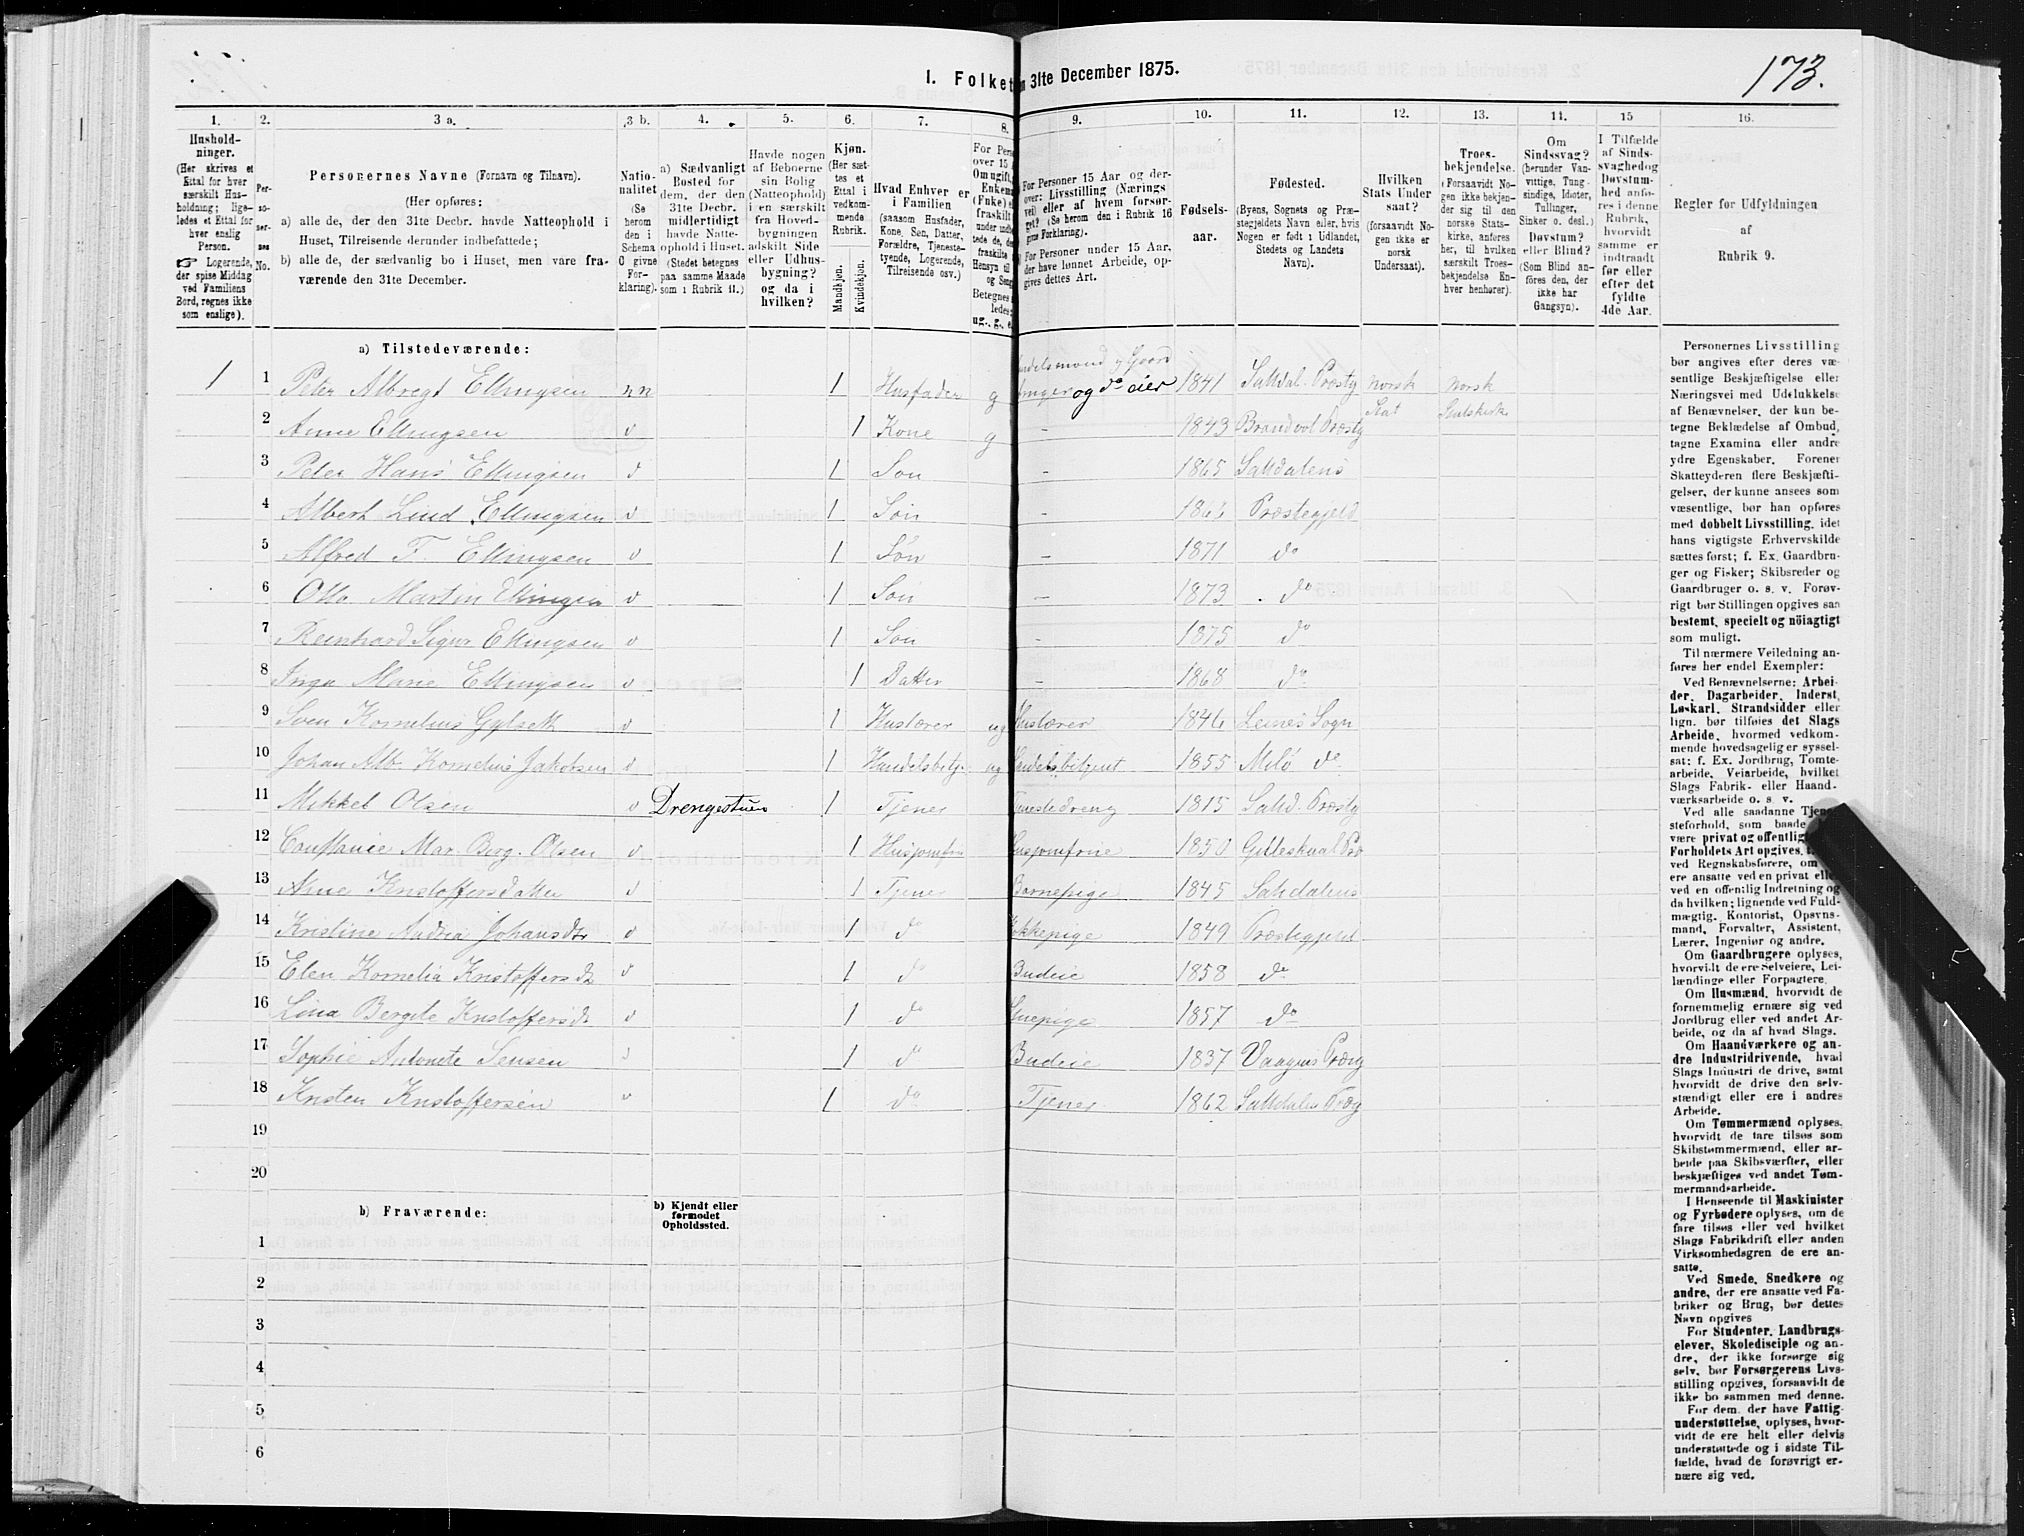 173.
I. Folket
n 31te December 1875.
1. 2. 3 a. 3 b. 4. 5. 6. 7. 8. 9. 10. 11. 12. 13. 14. 15 16.
Hushold-
ninger.
(Her skrives et
Ettal for hver
særskilt Hus-
holdning; lige-
ledes et Ettal for
hver enslig
Person.
☞ Logerende,
der spise Middag
ved Familiens
Bord, regnes ikke
som enslige).
Per-
so-
ner-
nes
No.
Personernes Navne (Fornavn og Tilnavn).
(Her opføres:
a) alle de, der den 31te Decbr. havde Natteophold i
Huset, Tilreisende derunder indbefattede;
b) alle de, der sædvanlig bo i Huset, men vare fra-
værende den 31te December.
Natio-
nalitet
(Se
herom
den i
Schema
C givne
For-
klaring).
a) Sædvanligt
Bosted for
dem, der den
31te Decbr.
midlertidigt
havde Natte-
ophold i Huset.
(Stedet betegnes
paa samme Maade
som i Rubrik 11.)
Havde nogen
af Beboerne
sin Bolig
(Natteophold)
i en særskilt
fra Hoved-
bygningen
adskilt Side
eller Udhus-
bygning?
og da i
hvilken?
Kjøn.
(Her sæt-
tes et
Ettal i
vedkom-
mende
Rubrik.
Mandkjøn.
Kvindekjøn.
Hvad Enhver er
i Familien
(saasom Husfader,
Kone, Søn, Datter,
Forældre, Tjeneste-
tyende, Logerende,
Tilreisende osv.)
For Pers
over 15
Om ugift,
Enkem
(Fuke)
fraskilt
under indbe
tede de, de
fraskilte
Hensyn til
og Seng
Betegnes
ledes:
ug., g., e
For Personer 15 Aar og der-
over: Livsstilling (Nærings
vei) eller af hvem forsør-
get? (Se herom den i Rubrik 16
givne Forklaring).
For Personer under 15 Aar,
der have lønnet Arbeide, op-
gives dettes Art.
Fødsels-
aar.
Fødested.
(Byens, Sognets og Præ-
stegjeldets Navn eller, hvis
Nogen er født i Udlandet,
Stedets og Landets
Navn).
Hvilken
Stats Under
saat?
(forsaavidt No-
gen ikke er
norsk
Undersaat).
Troes-
bekjendelse.
(Forsaavidt No-
gen ikke bekjen-
der sig til den
norske Stats-
kirke, anføres
her, til hvilken
særskilt Troes-
bekjendelse En-
hver henhører).
Om
Sindssvag?
(herunder Van-
vittige, Tung-
sindige, Idioter,
Tullinger,
Sinker o. desl.)
Døvstum?
eller Blind?
(Som Blind an-
føres den, der
ikke har
Gangsyn).
I Tilfælde
af Sinds-
svaghed og
Døvstum-
hed anfø-
res i denne
Rubrik,
hvorvidt
samme er
indtraadt
før eller
efter det
fyldte
4de Aar.
Regler for Udfyldningen
af
Rubrik 9.
a) Tilstedeværende:
1 1 Peter Albregt Ellingsen nn 1 Husfader g og do eier 1841 Saltdal. Præstg norsk norsk
Stat Statskirk
2 Anne Ellingsen 1 Kone g - 1843 Præstg
3 Peter Hans Ellingsen 1 Søn - 1865 Saltdalens
4 Albert Lind Ellingsen 1 Søn - Præstegjeld
5 Alfred F. Ellingsen 1 Søn - 1871 do
6 Otto Martin Ellingsen 1 Søn - 1873 do
7 Reinhard Sigur Ellingsen 1 Søn - 1875 do
8 Inga Marie Ellingsen 1 Datter - 1868 do
9 Sven Kornelius 1 Huslærer ug Huslærer 1846 Leines Sogn
10 Johan Alb. Kornelius Jakobsen 1 ug 1855 Melö do
11 Mikkel Olsen Drengestuen 1 Tjener 1815 Saltd. Præstg
12 Constance Mar. Berg. Olsen 1 Husjomfru Husjomfrue 1850
13 Anne Kristoffersdatter 1 Tjener Barnepige 1845 Saltdalens
14 Kristine Andrea Johansdtr 1 do Kokkepige 1849 Præstegjeld
15 Elen Kornelia Kristoffersd 1 do Budeie 1858 do
16 Lina Bergite Kristoffersd 1 do 1857 do
17 Sophie Antonete Jensen 1 do Budeie 1837
18 Kristen Kristoffersen 1 do Tjener 1862 Saltdalens
19
20
b) Fraværende:
b) Kjendt eller
formodet
Opholdssted.
1
2
3
4
5
6
Personernes Livsstilling
bør angives efter deres væ-
sentlige Beskjæftigelse eller
Næringsvei med Udelukkelse
af Benævnelser, der kun be-
tegne Bekledelse af Ombud,
tagne Examina eller andre
ydre Egenskaber. Forener
Skatteyderen flere Beskjæfti-
gelser, der kunne ansees som
væsentlige, bør han opføres
med dobbelt Livsstilling, idet
hans vigtigste Erhvervskilde
sættes først; f. Ex. Gaardbru-
ger og Fisker; Skibsreder og
Gaardbruger o. s. v. Forøv-
rigt bør Stillingen opgives saa
bestemt, specielt og nöiagtigt
som muligt.
Til nærmere Veiledning an-
føres her endel Exempler:
Ved Benævnelserne: Arbei-
der, Dagarbeider, Inderst,
Løskarl, Strandsidder eller
lign. bør tilføies det Slags
Arbeide, hvormed vedkom-
mende hovedsagelig er syssel-
sat; f. Ex. Jordbrug, Tomte-
arbeide, Veiarbeide, hvilket
Slags Fabrik- eller Haand-
værksarbeide o. s v.
Ved alle saadanne Tjene-
steforhold, som baade
være privat og offentlig
Forholdets Art opgives,
ved Regnskabsførere, om
ere ansatte ved en privat elle
ved en offenlig Indretning og
da hvilken; lignende ved Fuld-
mægtig, Kontorist, Opsyns-
mand, Forvalter, Assistent,
Lærer, Ingeniør og andre.
Om Gaardbrugere oplyses,
hvorvidt de ere Selveiere, Lei-
lændinge eller Forpagtere.
Om Husmænd, hvorvidt de
fornemmelig ernære sig ved
Jordbrug eller ved andet Ar-
beide, og da af hvad Slags.
Om Haandværkere og an-
dre Industridrivende, hvad
Slags Industri de drive, samt
hvorvidt de drive den selv-
stændigt eller ere i andres
Arbeide.
Om Tømmermænd oplyses,
hvorvidt de fare tilsøs som
Skibstømmermænd, eller ar-
beide paa Skibsværfter, eller
beskjæftiges ved andet Tøm-
mermandsarbeide.
I Henseende til Maskinister
og Fyrbødere oplyses, om de
fare tilsøs eller ved hvilket
Slags Fabrikdrift eller anden
Virksomhedsgren de ere an-
satte.
Ved Smede, Snedkere og
andre, der ere ansatte ved Fa-
briker og Brug, bør dettes
Navn opgives
For Studenter, Landbrugs-
elever, Skoledisciple og an-
dre, der ikke forsørge sig
selv, bør Forsørgerens Livs-
stilling opgives, forsaavidt de
ikke bo sammen med denne.
For dem, der have Fattig-
understøttelse, oplyses, hvor-
vidt de ere helt eller delvis
understøttede og i sidste Til-
fælde, hvad de forøvrigt er-
nære sig ved.